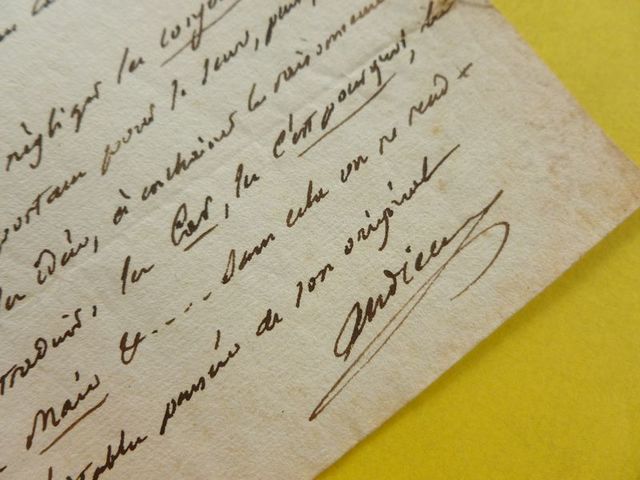 négliger les conjon
portans pour le
les idées, à enchaîner les raisonnemen
traduire, les Car, les c'est pourquoi, les
Mais &.... Sans cela on ne rend
itable pensée de son original
Andrieux